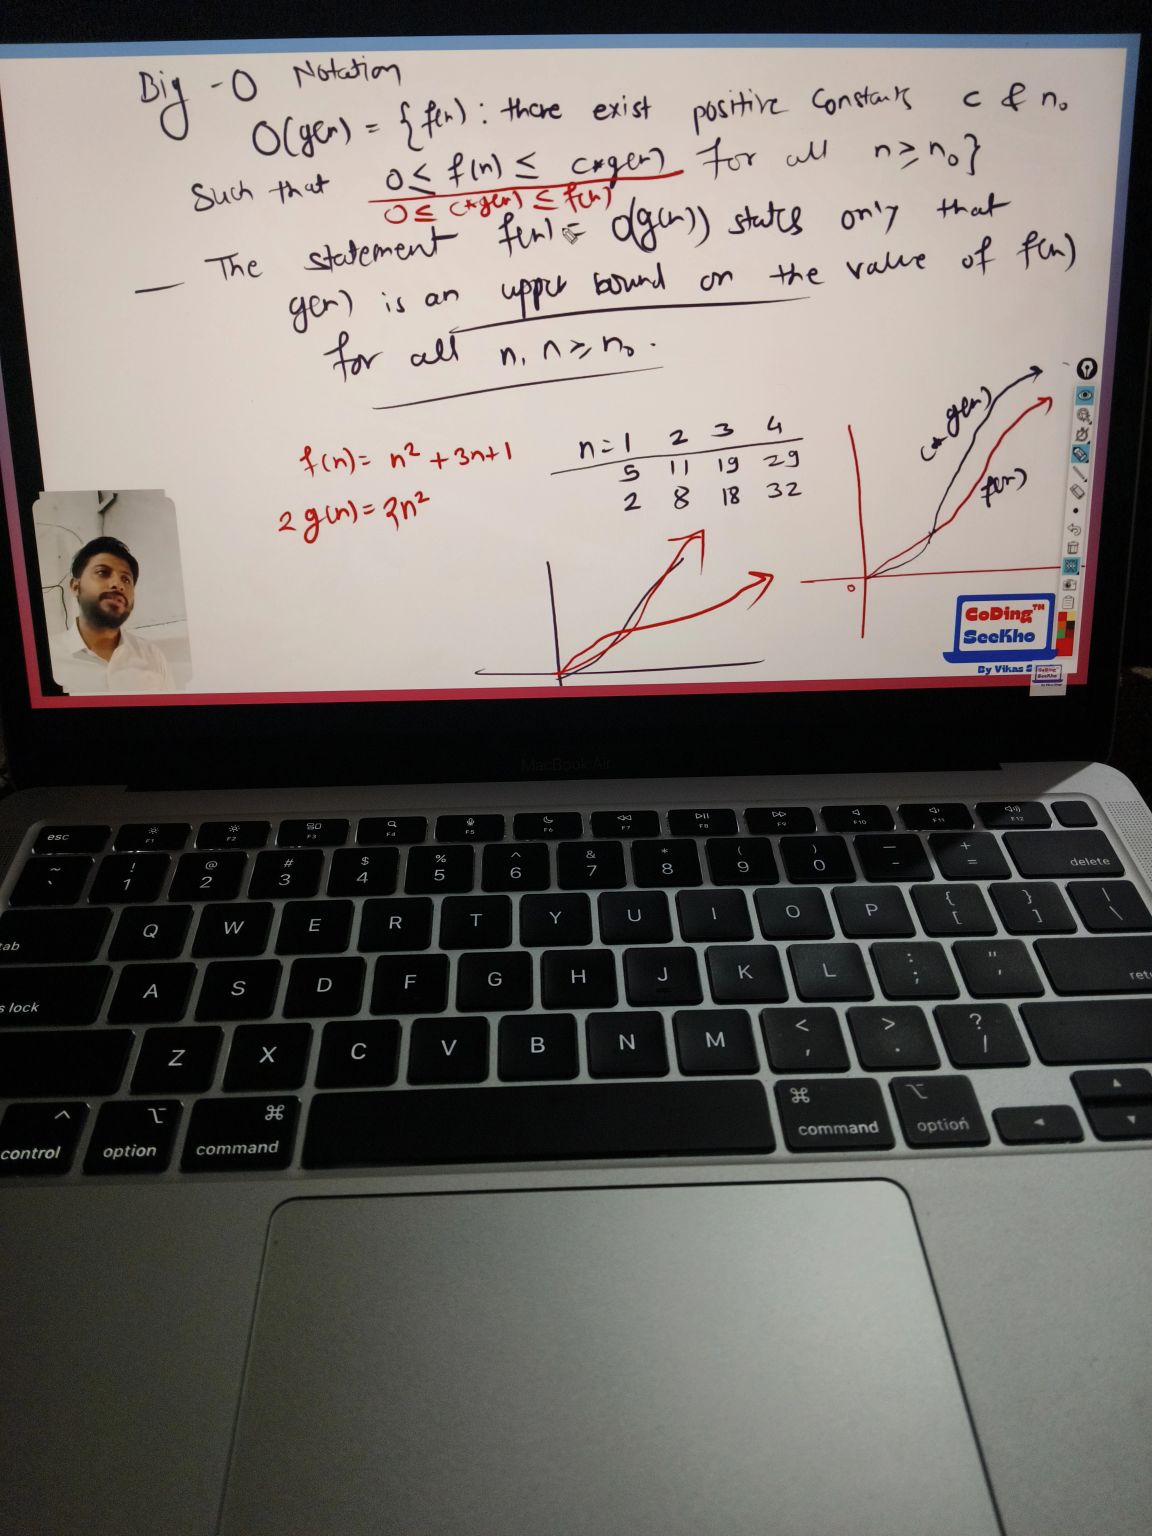 Big -O Notation
O(g(n)) = {f(n) : there exist positive constants c & n₀
Such that 0 ≤ f(n) ≤ c*g(n) for all n ≥ n₀}
0 ≤ c*g(n) ≤ f(n)
The statement f(n) = O(g(n)) states only that
g(n) is an upper bound on the value of f(n)
for all n, n ≥ n₀.
f(n) = n² + 3n+1
2 g(n) = 2n²
n=1 2 3 4
5 11 19 29
2 8 18 32
c* g(n)
f(n)
0
CoDing™
SeeKho
By Vikas S
CoDing
SeeKho
MacBook Air
esc F1 F2 F3 F4 F5 F6 F7 F8 F9 F10 F11 F12
~ ! @ # $ % ^ & * ( ) — +
` 1 2 3 4 5 6 7 8 9 0 - = delete
tab Q W E R T Y U I O P { [ } ] | \
s lock A S D F G H J K L : ; " ' retu
Z X C V B N M < , > . ? /
control option command command option